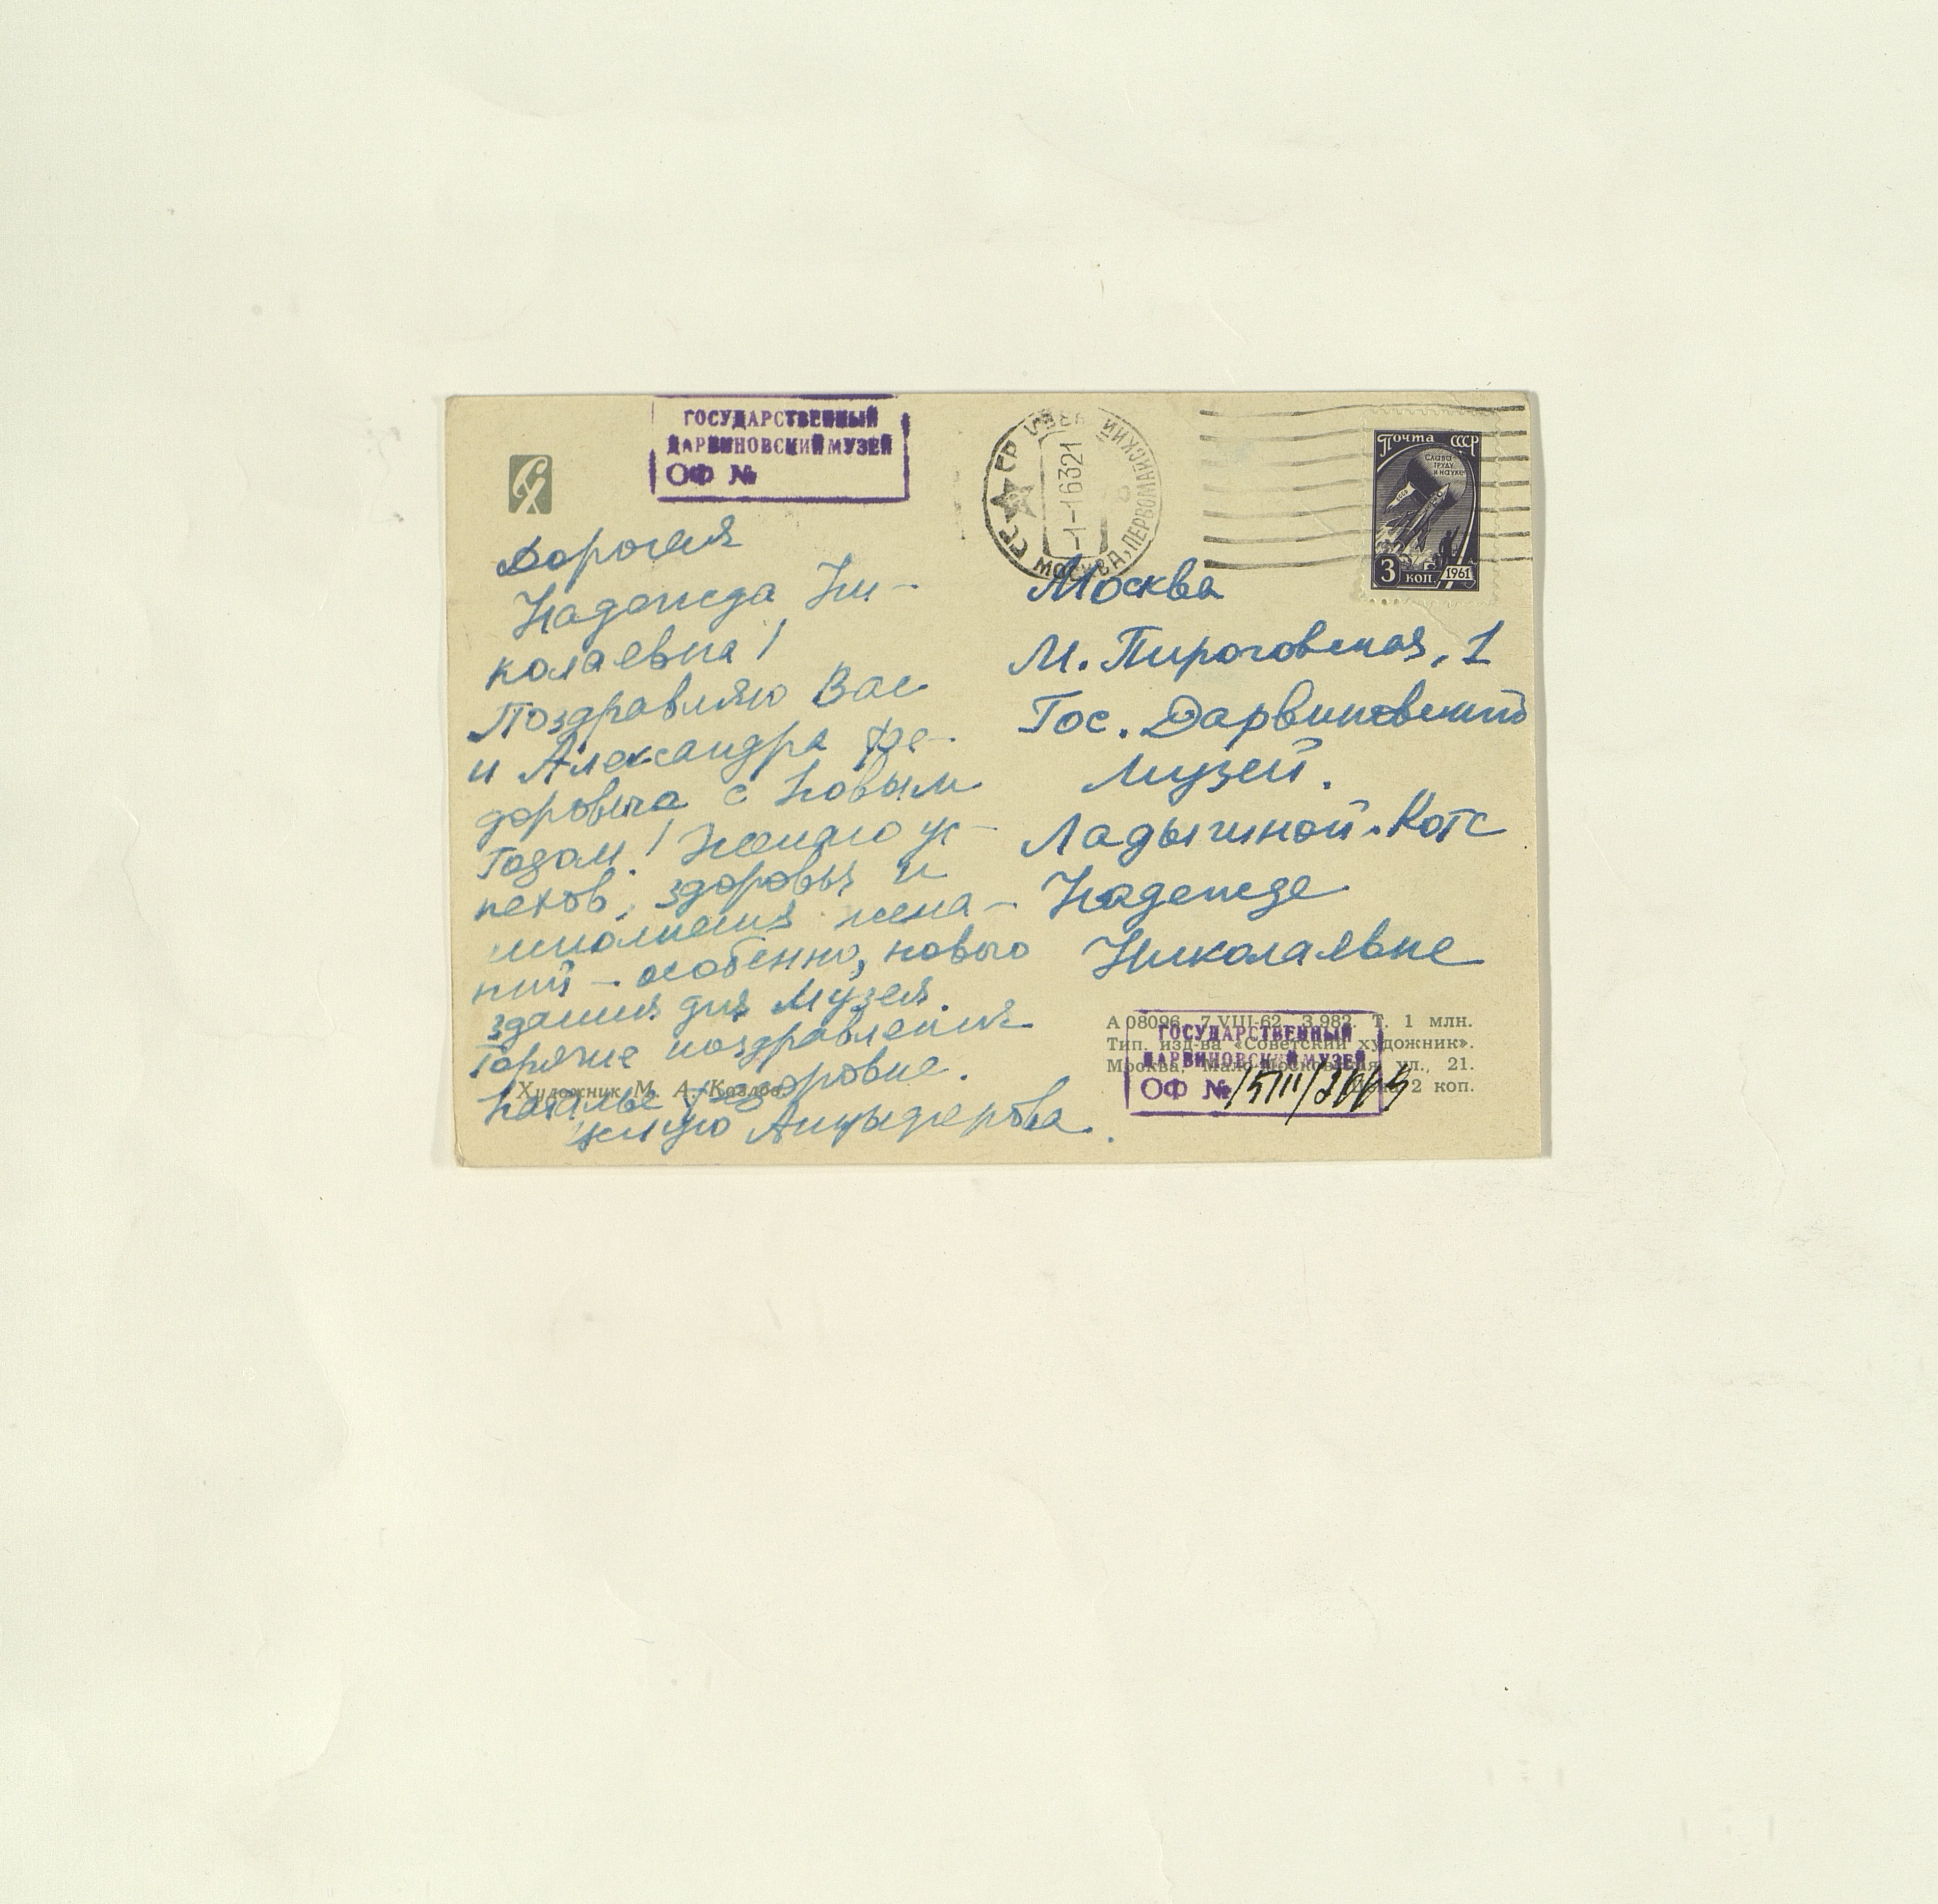 ГОСУДАРСТВЕННЫЙ
ДАРВИНОВСКИЙ МУЗЕЙ
ОФ №
Дорогая
Надежда Ни-
колаевна!
Поздравляю Вас
и Александра Фе-
доровича с Новым
Годом! Желаю ус-
пехов, здоровья и
исполнения жела-
ний - особенно, нового
здания для Музея.
Горячие поздравления
Наталье Федоровне.
СССР
МОСКВА, ПЕРВОМАЙСКИЙ
1-1-6321
Почта СССР
Слава
труду
и науке
3 коп. 1961
Москва
М. Пироговская, 1
Гос. Дарвиновский
Музей.
Ладыгиной-Котс
Надежде
Николаевне
А 08096 7.VIII-62 3.982. Т. 1 млн.
Тип. изд-ва «Советский художник».
Москва, Мало-Московская ул., 21.
2 коп.
ГОСУДАРСТВЕННЫЙ
ДАРВИНОВСКИЙ МУЗЕЙ
ОФ №
Художник М. А. Козлов